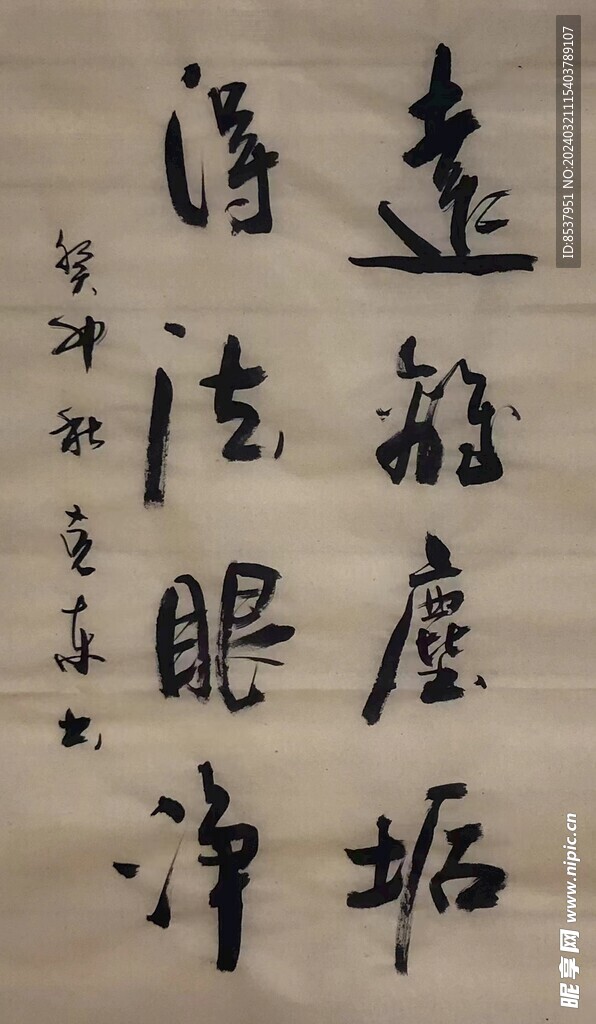 遠離塵垢
得法眼净
癸卯秋克東书
ID:8537951 NO:20240321115403789107
昵享网 www.nipic.cn